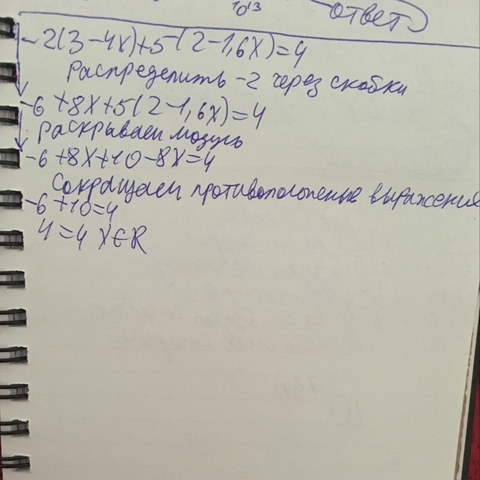 1013
ответ
-2(3-4x)+5(2-1,6x)=4
Распределить -2 через скобки
-6+8x+5(2-1,6x)=4
раскрываем модуль
-6+8x+10-8x=4
Сокращаем противоположные выражения
-6+10=4
4=4 x∈R